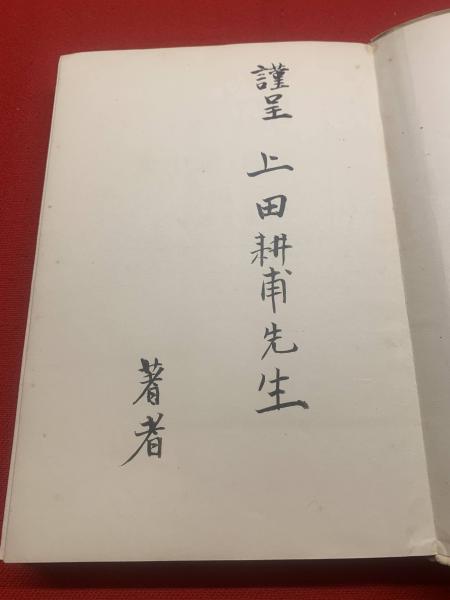 謹呈 上田耕甫先生
著者